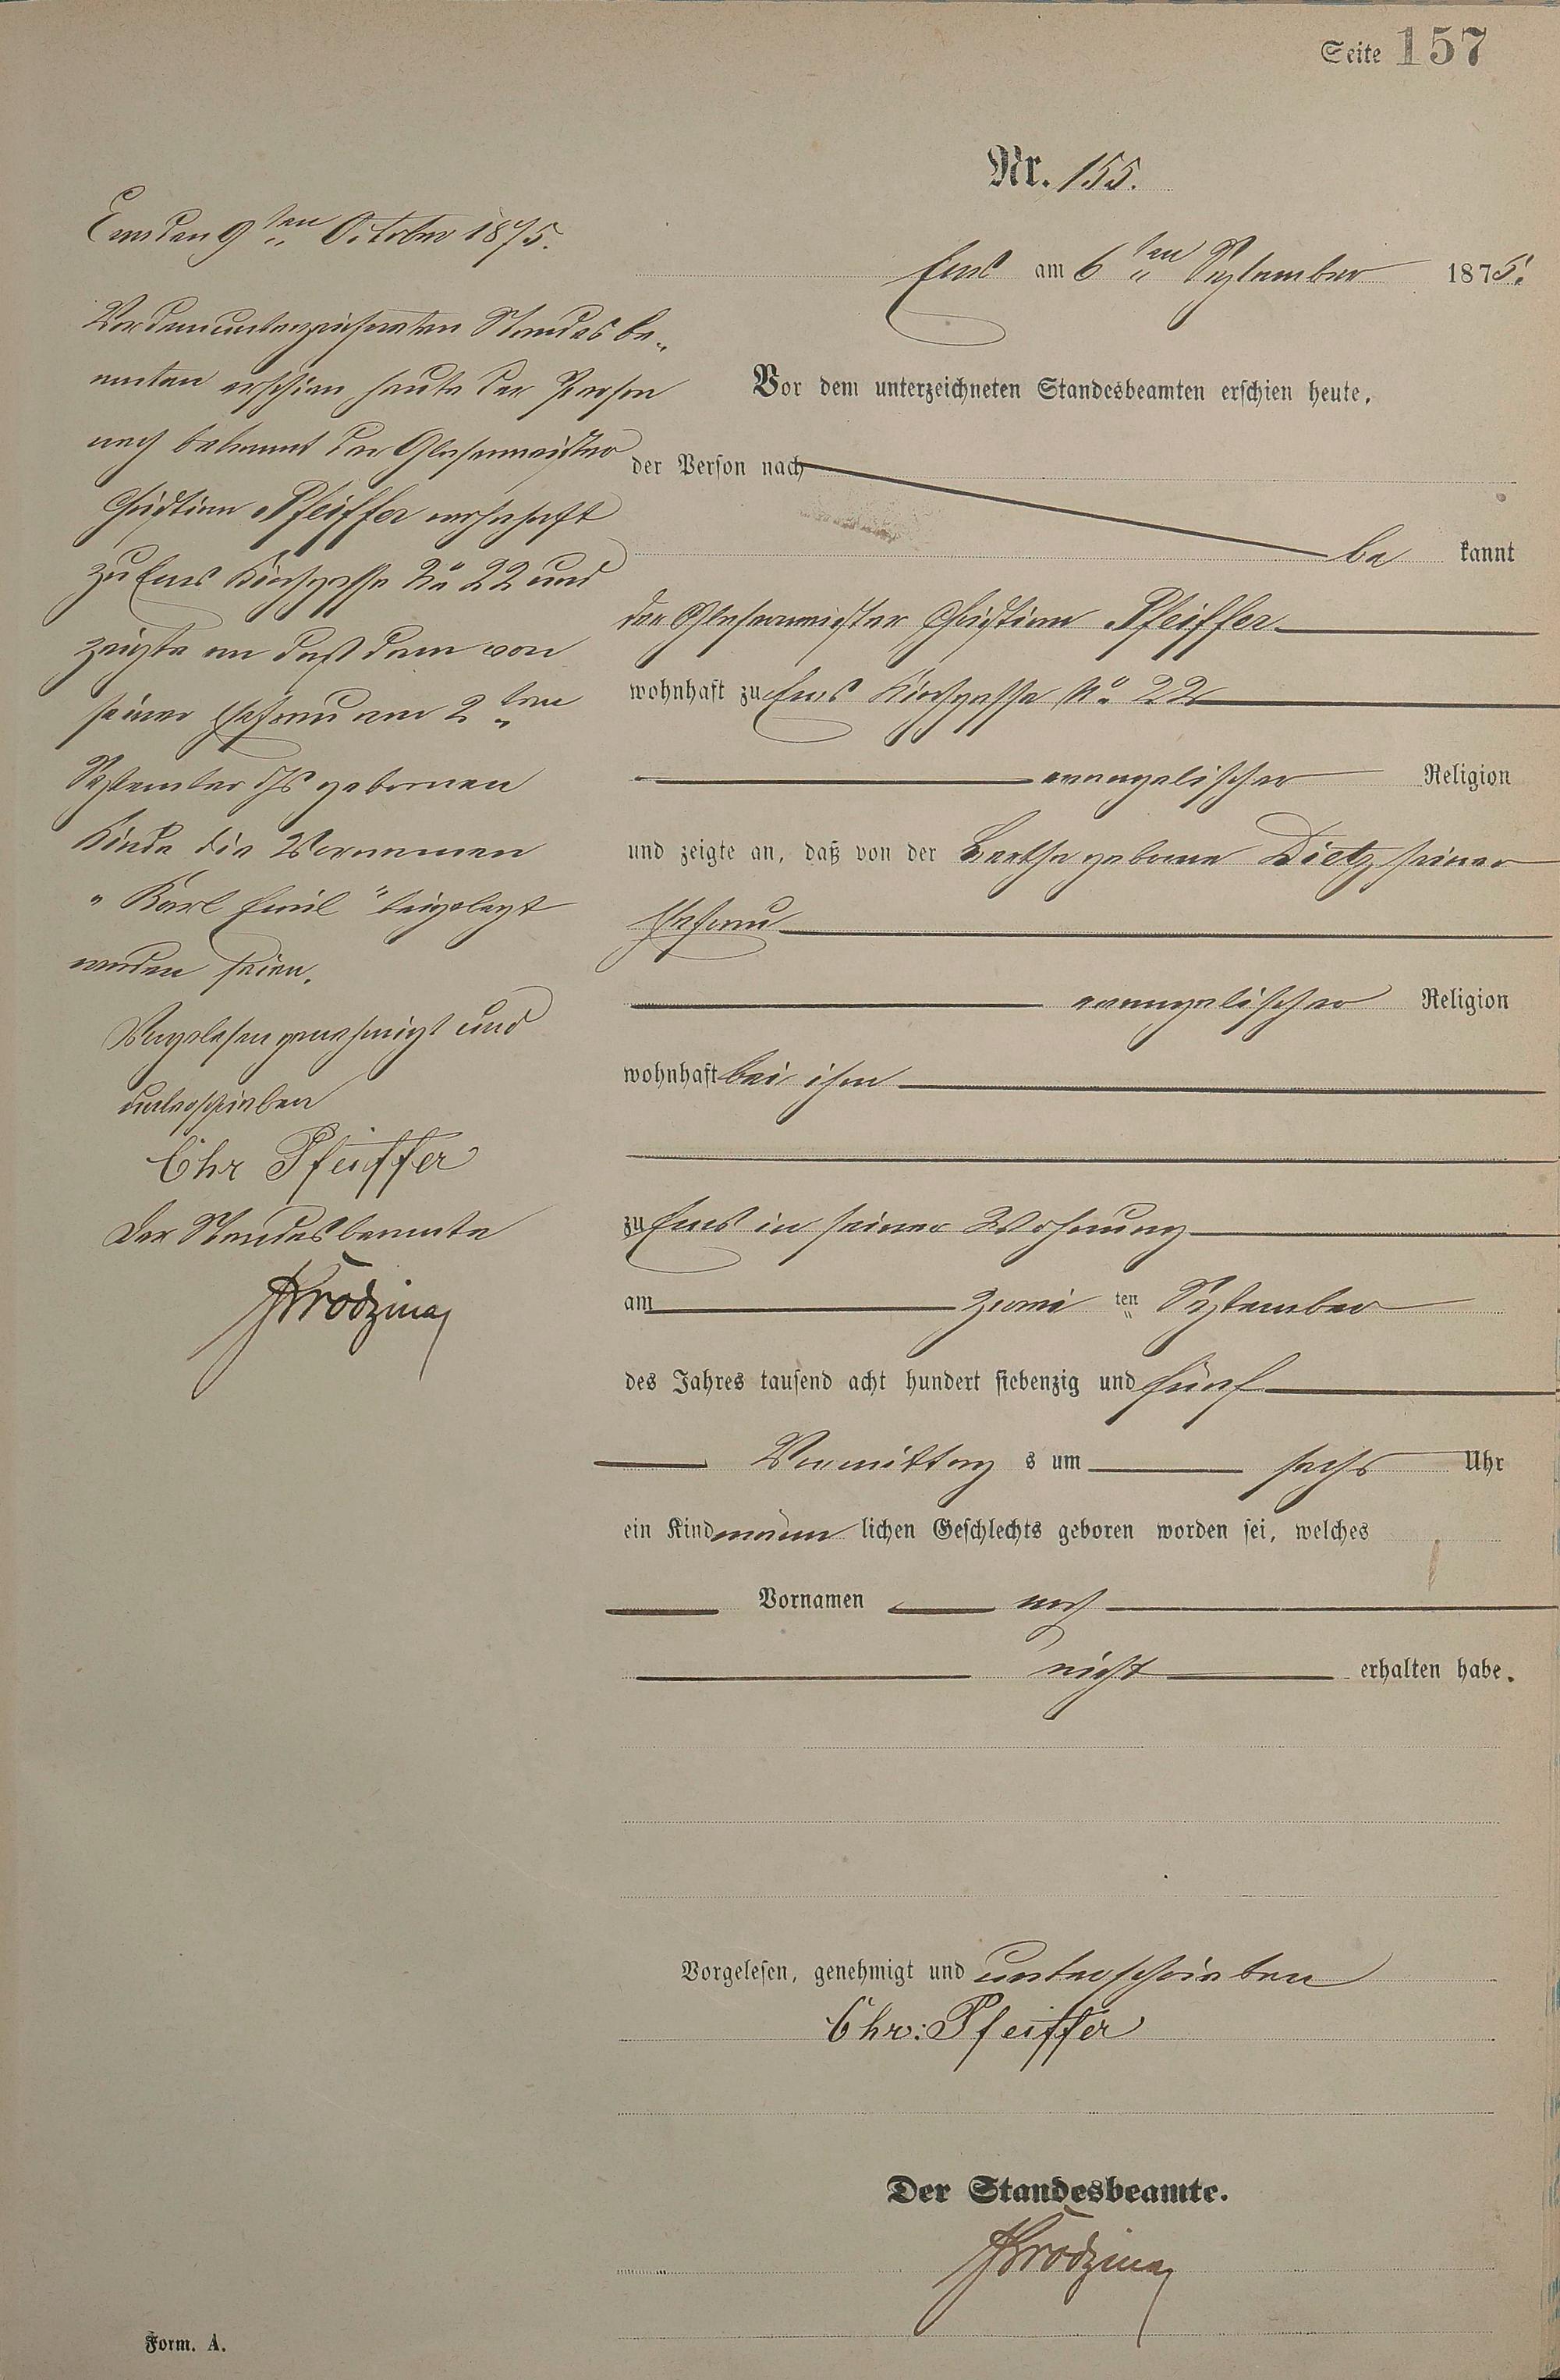 Seite 157
Nr. 155.
Ems am 6ten September 1875.
Vor dem unterzeichneten Standesbeamten erschien heute,
der Person nach
be kannt
der Glasermeister Christian Pfeiffer
wohnhaft zu Ems Kirchgasse No 22
evangelischer Religion
und zeigte an, daß von der Bertha geborene Dietz seiner
Ehefrau
evangelischer Religion
wohnhaft bei ihm
zu Ems in seiner Wohnung
am zwei ten September
des Jahres tausend acht hundert siebenzig und fünf
Vormittag s um sechs Uhr
ein Kind männ lichen Geschlechts geboren worden sei, welches
Vornamen noch
nicht erhalten habe.
Vorgelesen, genehmigt und unterschrieben
Chr: Pfeiffer
Der Standesbeamte.
Ems den 9ten October 1875.
Vor dem unterzeichneten Standesbe-
amten erschien heute der Person
nach bekannt der Glasermeister
Christian Pfeiffer wohnhaft
zu Ems Kirchgasse No 22 und
zeigte an daß dem von
seiner Ehefrau am 2ten
September ds geborenen
Kinde die Vornamen
"Karl Emil" beigelegt
worden seien.
Vorgelesen genehmigt und
unterschrieben
Chr Pfeiffer
Der Standesbeamte
Form. A.